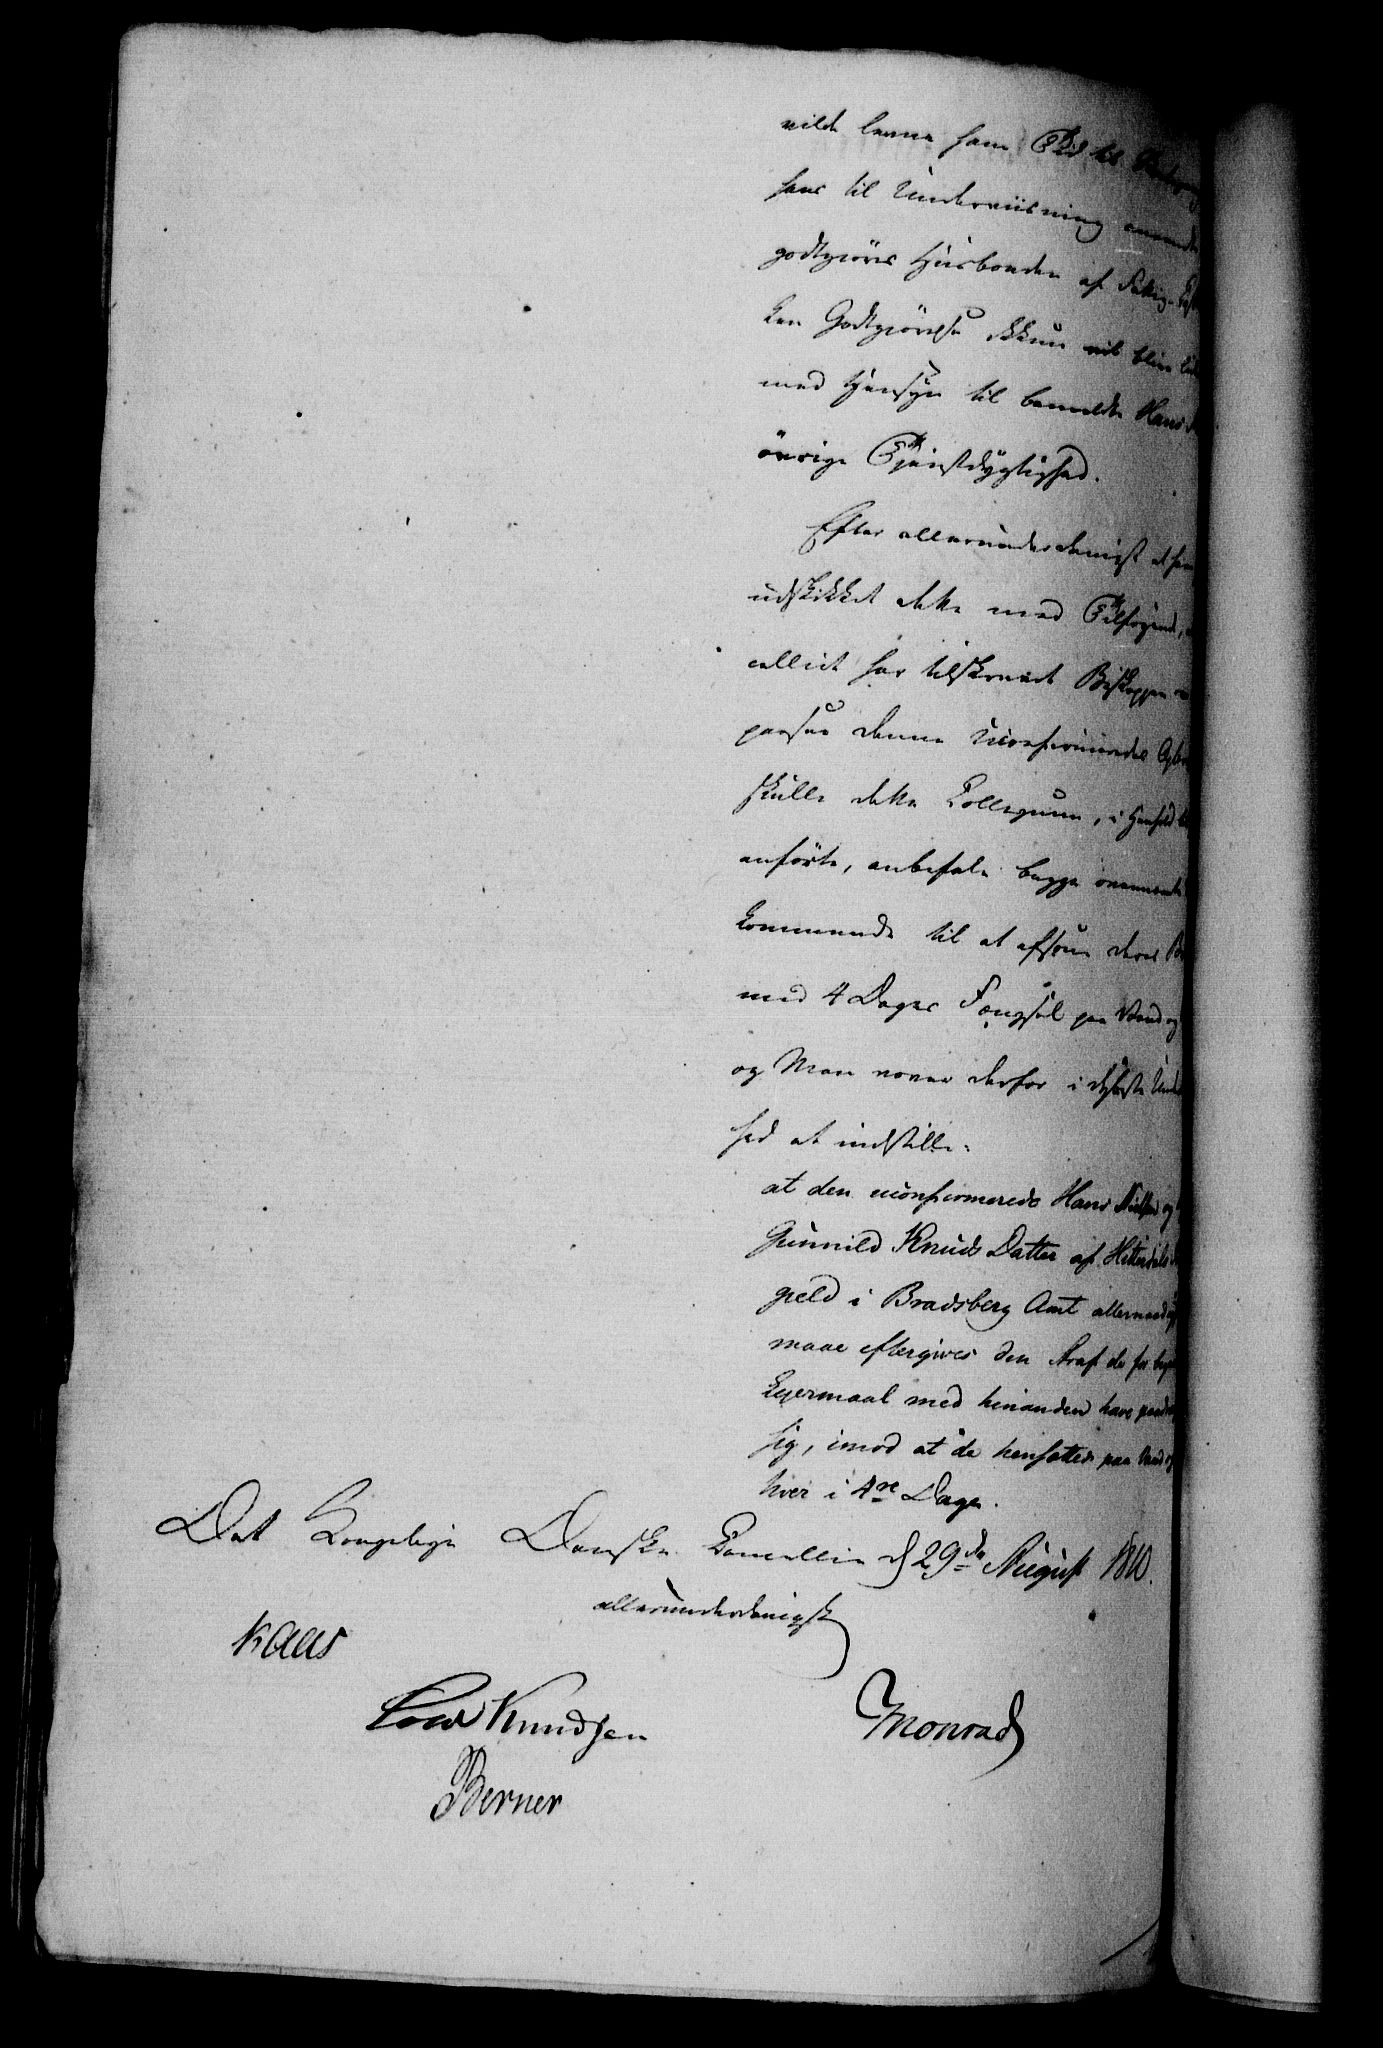 vilde levne ham Tid til
hans til Underviisning anvendte
godtgiøres Huusbonden af Fattig-
ken Godtgiörelse ikkun vil blive
med Hensyn til bemeldte Hans
övrige Tjenstdygtighed.
Efter allerunderdanigst at have
udskikket dette med Tilföiende,
allied har tilskrevet Biskoppen
passue denne Uconfirmerdes
skulle dette Collegium, i Henhold til
anförte, anbefale begge ovennævnte
kommende til at afsone deres
med 4 Dages Fængsel paa Vand og
og Man vover derfor i dybeste Under
hed at indstille:
at den uconfirmerede Hans Nielsen og
Gunnild Knuds Datter af Hitterdals
gield i Bradsberg Amt allernaadigst
maae eftergives den Straf de for
Leiermaal med hinanden have paadraget
sig, imod at de hensættes paa Vand og
hver i 4re Dage.
Det Kongelige Danske Cancellie d 29de August 1810.
allerunderdanigst
Kaas
Knudsen Monrad
Berner